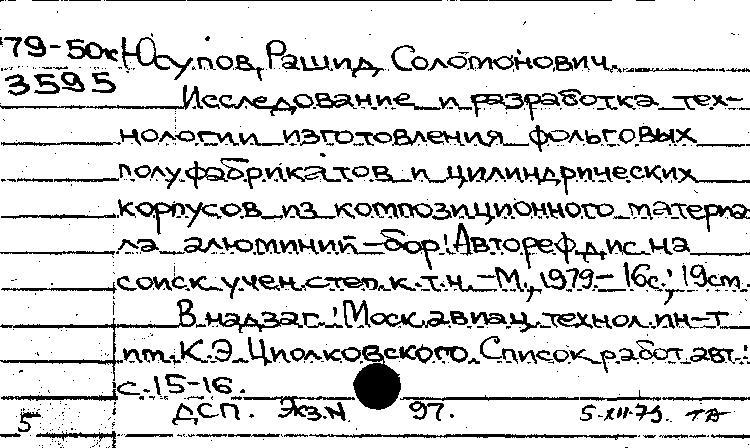 79-50к Юсупов, Рашид Соломонович.
3595
Исследование и разработка тех-
нологии изготовления фольговых
полуфабрикатов и цилиндрических
корпусов из композиционного материа
ла алюминий-бор: Автореф. дис. на
соиск. учен. степ. к. т. н. - М., 1979 - 16с.; 19см.
В надзаг.: Моск. авиац. технол. ин-т
им. К.Э. Циолковского. Список работ авт.:
с. 15-16.
ДСП. Экз.N 97. 5-XII-79. ТА
5